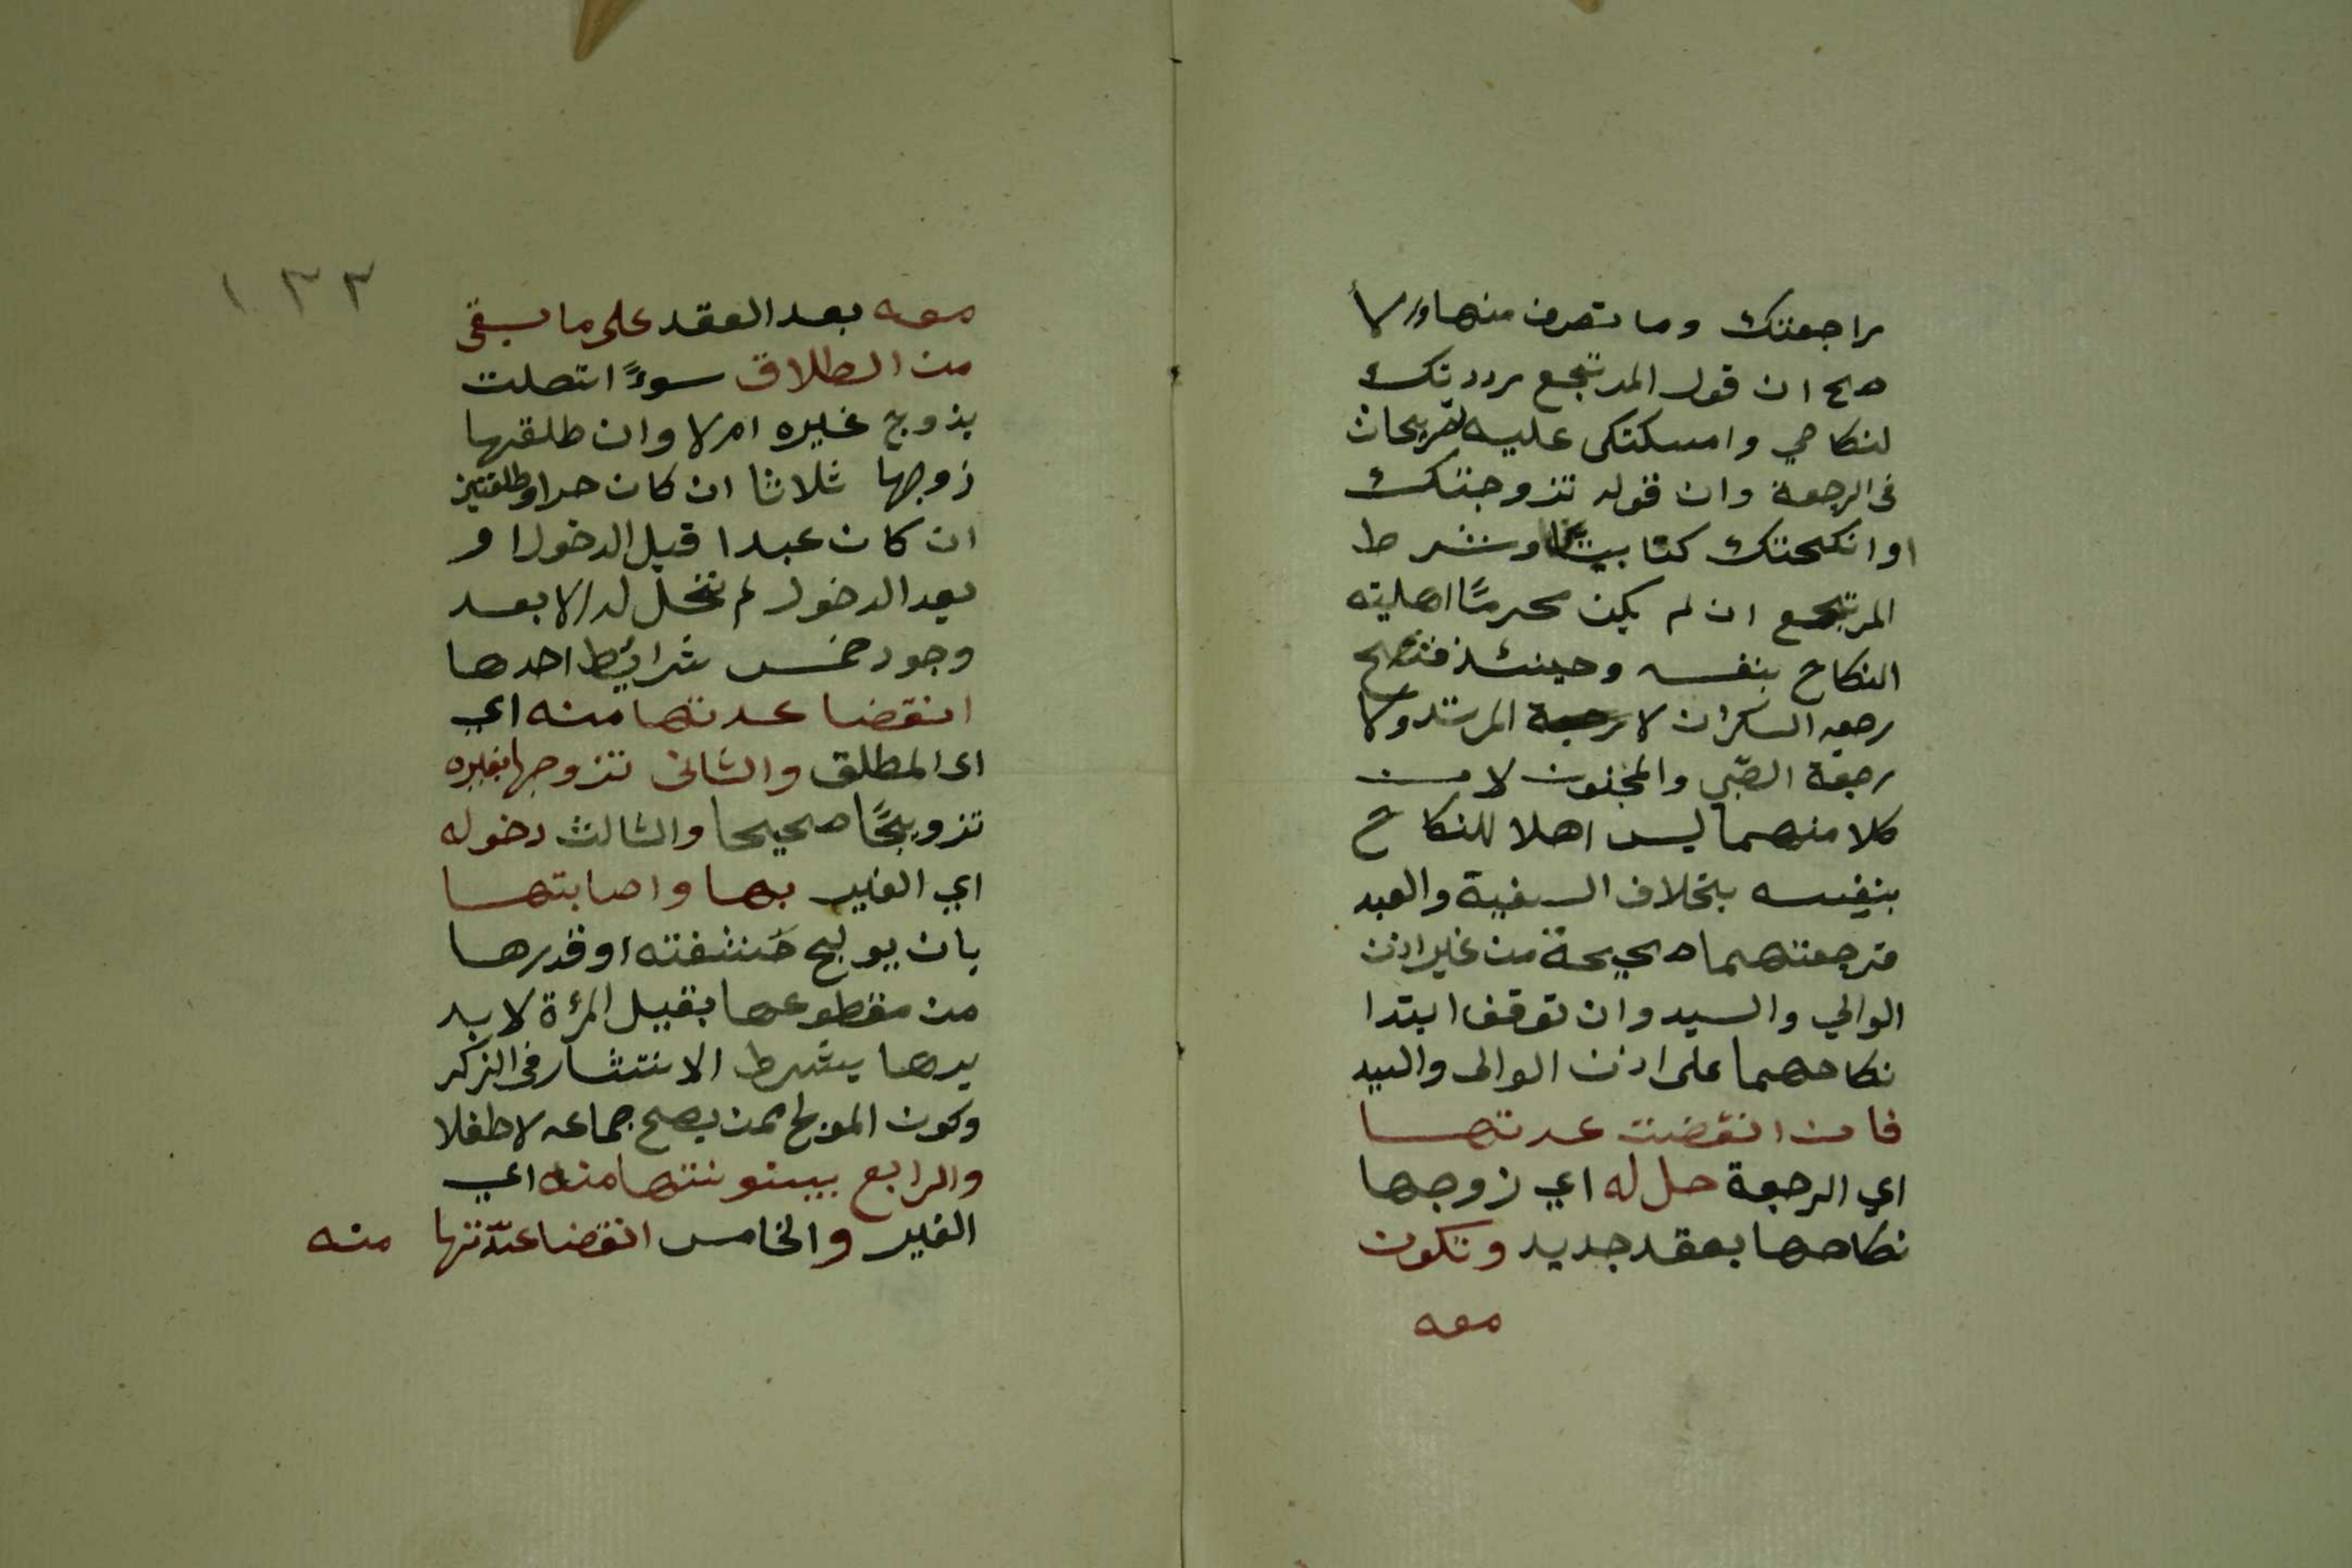 مراجعتك وما تصرف منها والا
صح ان قول المرتجع رددتك
لنكاحي وامسكتكى عليه تصريحان
فى الرجعة وان قوله تزوجتك
او انكحتك كتابيتان وشرط
المرتجع ان لم يكن محرمًا اهليته
النكاح بنفسه وحينئذ فتصح
رجعه السكران لا رجعة المرتد ولا
رجعة الصّبي والمجنون لا من
كلا منهما ليس اهلا للنكاح
بنفسه بخلاف السفية والعبد
فرجعتهما صحيحة من غير اذن
الوالي والسيد وان توقف ابتدا
نكاحهما على اذن الوالى والسيد
فان انقضت عدتها
اي الرجعة حل له اي زوجها
نكاحها بعقد جديد وتكون
معه
١٣٣
معه بعد العقد على ما يبقى
من الطلاق سوءً اتصلت
بزوج غيره ام لا وان طلقها
زوجها ثلاثا ان كان حرا وطلقتين
ان كان عبدا قبل الدخول او
بعد الدخول لم تحل له الا بعد
وجود خمس شرائط احدها
انقضا عدتها منه اي
اى المطلق والثانى تزوجها بغيره
تزويجًا صحيحا والثالث دخوله
اي الغير بها واصابتها
بان يولج حشفته او قدرها
من مقطوعها بقبل المرءة لا بد
يرها يشرط الانتشار فى الذكر
وكون المولج ممن يصح جماعه لا طفلا
والرابع بينونتها منه اي
الغير والخامس انقضا عدّتها
منه